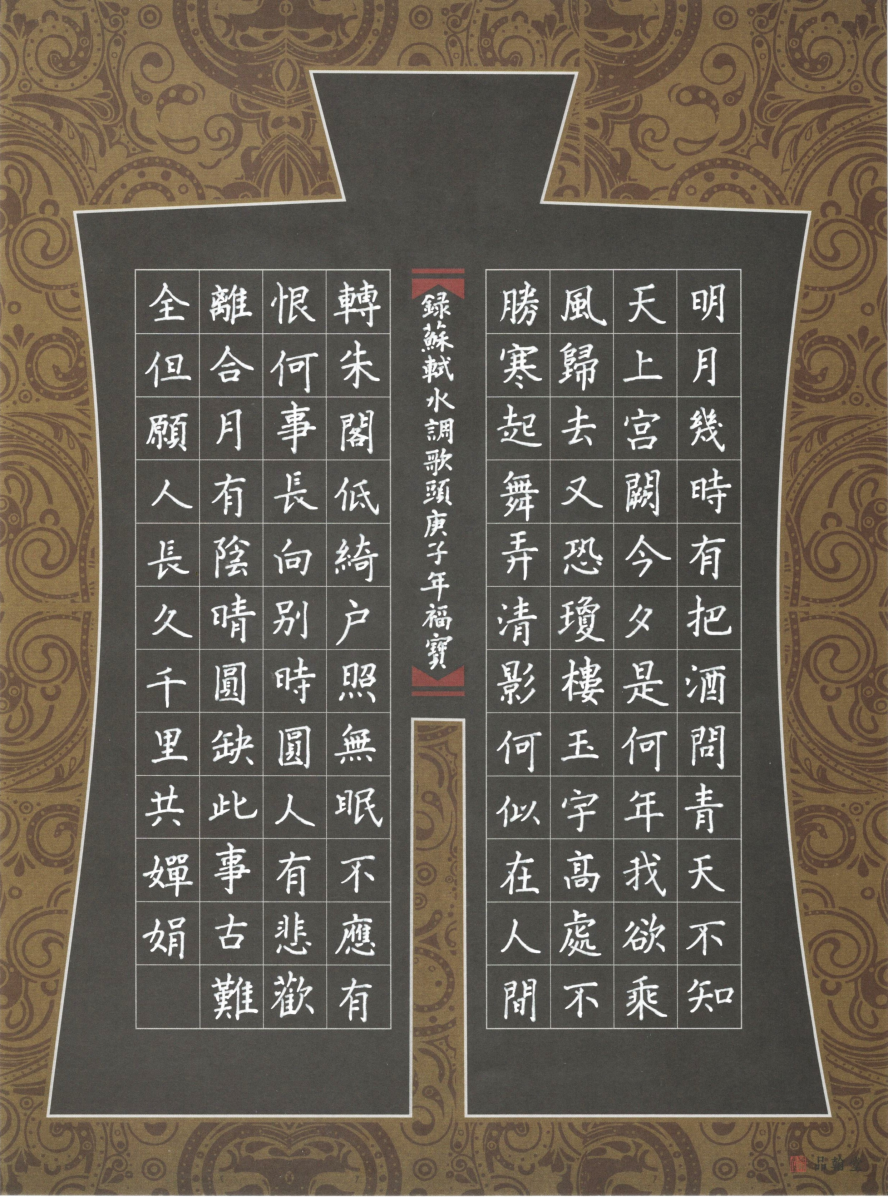 明月幾時有把酒問青天不知
天上宮闕今夕是何年我欲乘
風歸去又恐瓊樓玉宇高處不
勝寒起舞弄清影何似在人間
録蘇軾水調歌頭庚子年福寶
轉朱閣低綺户照無眠不應有
恨何事長向别時圓人有悲歡
離合月有陰晴圓缺此事古難
全但願人長久千里共嬋娟